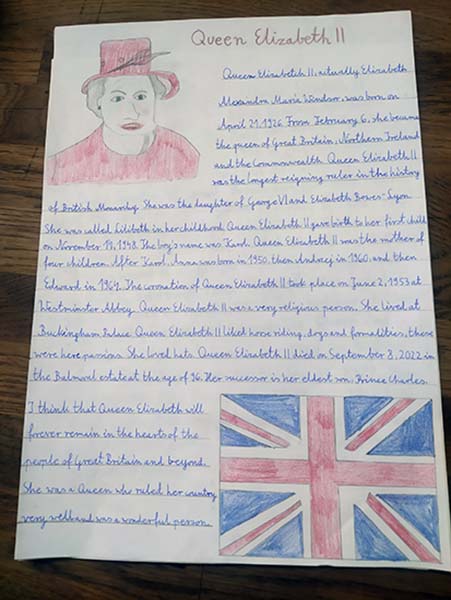 Queen Elizabeth II
Queen Elizabetch II, actually Elizabeth
Alexandra Marie Windsor, was born on
April 21.1926. From February 6, she became
the queen of Great Britain, Northern Ireland
and the Commonwealth. Queen Elizabeth II
was the longest reigning ruler in the history
of British Monarchy. She was the daughter of George VI and Elizabeth Bowes-Lyon.
She was called Lilibeth in her childhood. Queen Elizabeth II gave birth to her first child
on November 14, 1948. The boy's name was Karol. Queen Elizabeth II was the mother of
four children. After Karol, Anna was born in 1950, then Andrzej in 1960, and then
Edward in 1964. The coronation of Queen Elizabeth II took place on June 2, 1953 at
Westminster Abbey. Queen Elizabeth II was a very religious person. She lived at
Buckingham Palace. Queen Elizabeth II liked horse riding, dogs and formalities, these
were here passions. She loved hats. Queen Elizabeth II died on September 8, 2022 in
the Balmoral estate at the age of 96. Her successor is her eldest son, Prince Charles.
I think that Queen Elizabeth will
forever remain in the hearts of the
people of Great Britain and beyond.
She was a Queen who ruled her country
very well and was a wonderful person.